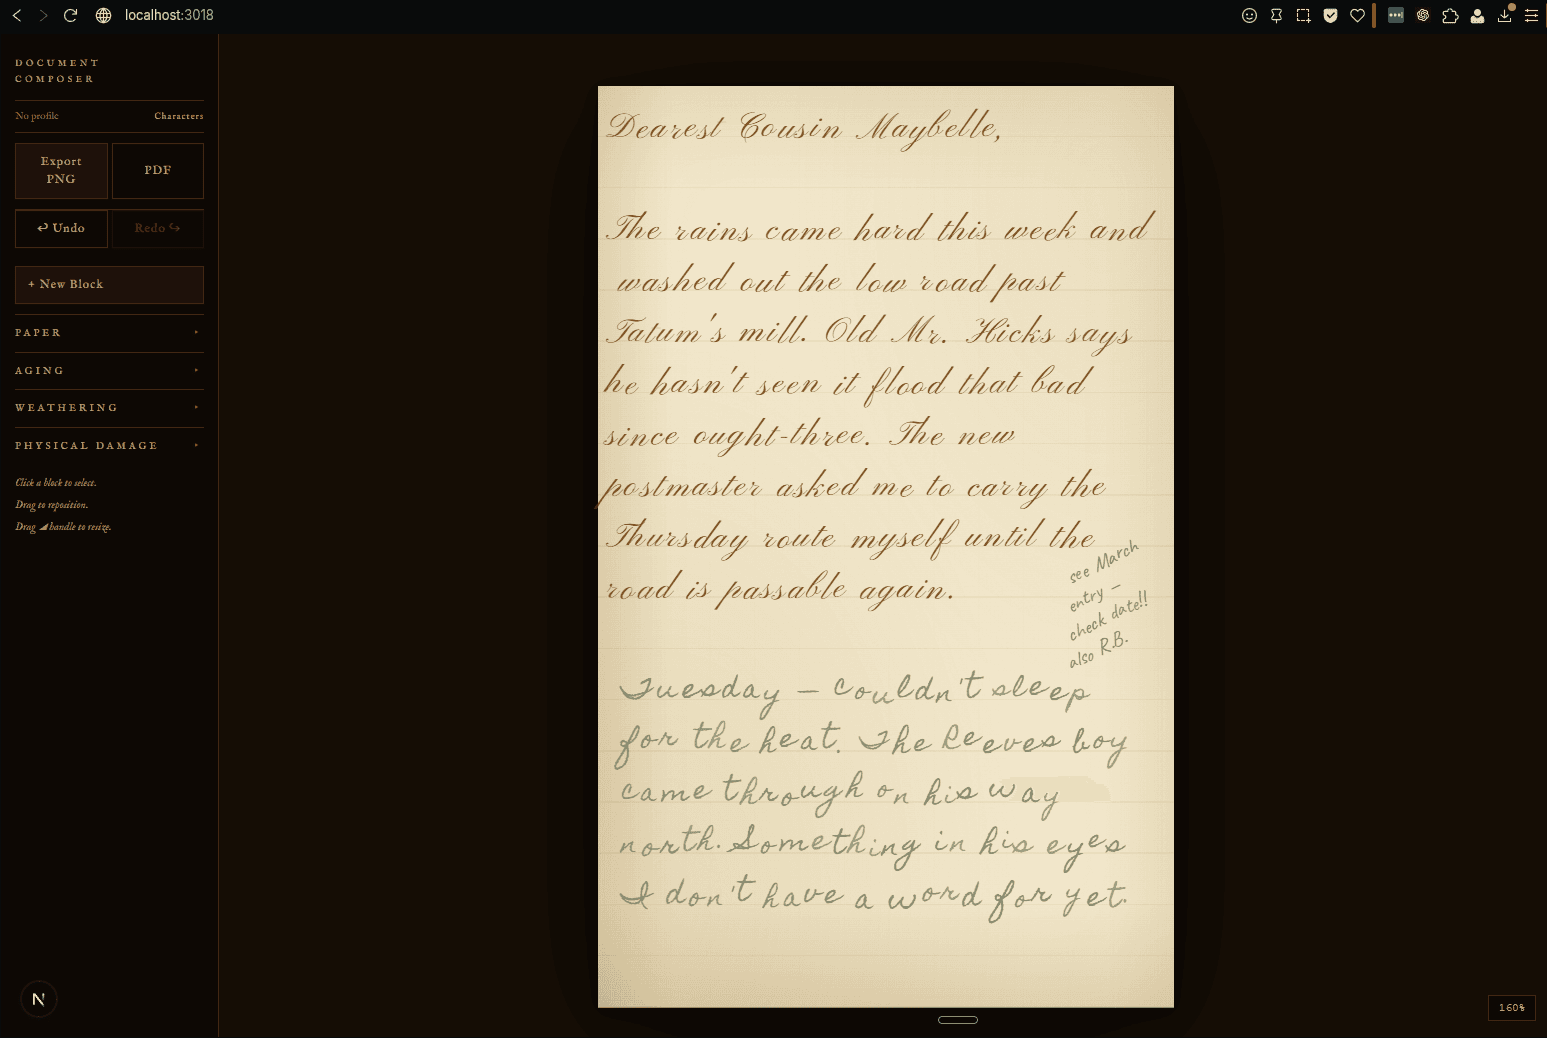 localhost:3018
DOCUMENT
COMPOSER
No profile
Characters
Export
PNG
PDF
↩ Undo
Redo ↪
+ New Block
PAPER
AGING
WEATHERING
PHYSICAL DAMAGE
Click a block to select.
Drag to reposition.
Drag ◢ handle to resize.
N
Dearest Cousin Maybelle,
The rains came hard this week and
washed out the low road past
Tatum's mill. Old Mr. Hicks says
he hasn't seen it flood that bad
since ought-three. The new
postmaster asked me to carry the
Thursday route myself until the
road is passable again.
see March
entry –
check date!!
also R.B.
Tuesday — couldn't sleep
for the heat. The Reeves boy
came through on his way
north. Something in his eyes
I don't have a word for yet.
160%